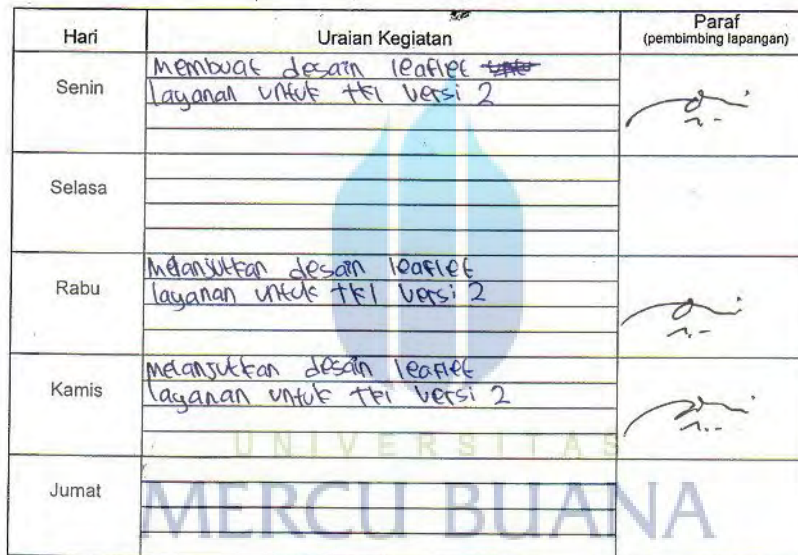 Hari
Uraian Kegiatan
Paraf
(pembimbing lapangan)
Senin
Membuat desain leaflet
layanan untuk tki versi 2
Selasa
Rabu
Melanjutkan desain leaflet
layanan untuk tki versi 2
Kamis
melanjutkan desain leaflet
layanan untuk tki versi 2
Jumat
UNIVERSITAS
MERCU BUANA